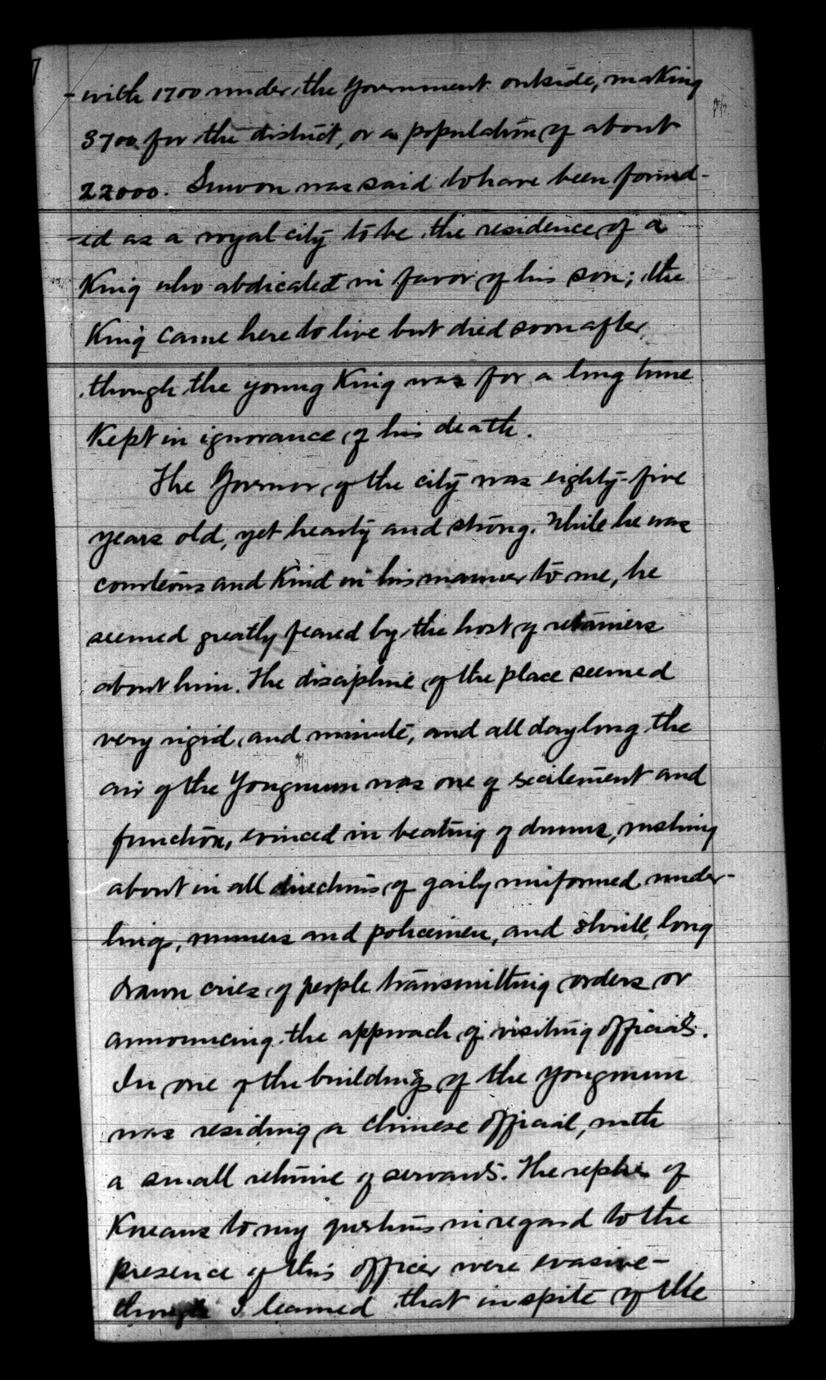 -with 1700 under the Government outside, making
3700 for the district, or a population of about
22000. Suwon was said to have been found-
-ed as a royal city to be the residence of a
King who abdicated in favor of his son; the
King came here to live but died soon after,
though the young King was for a long time
Kept in ignorance of his death.
The Governor of the city was eighty-five
years old, yet hearty and strong. While he was
courteous and Kind in his manner to me, he
seemed greatly feared by the host of retainers
about him. The discipline of the place seemed
very rigid and minute, and all day long the
air of the Yongmun was one of excitement and
function, evinced in beating of drums, rushing
about in all directions of gaily uniformed under-
lings, runners and policemen, and shrill, long
drawn cries of people transmitting orders or
announcing the approach of visiting officials.
In one of the buildings of the Yongmun
was residing a Chinese official, with
a small retinue of servants. The replies of
Koreans to my questions in regard to the
presence of this officer were evasive-
though I learned that in spite of the